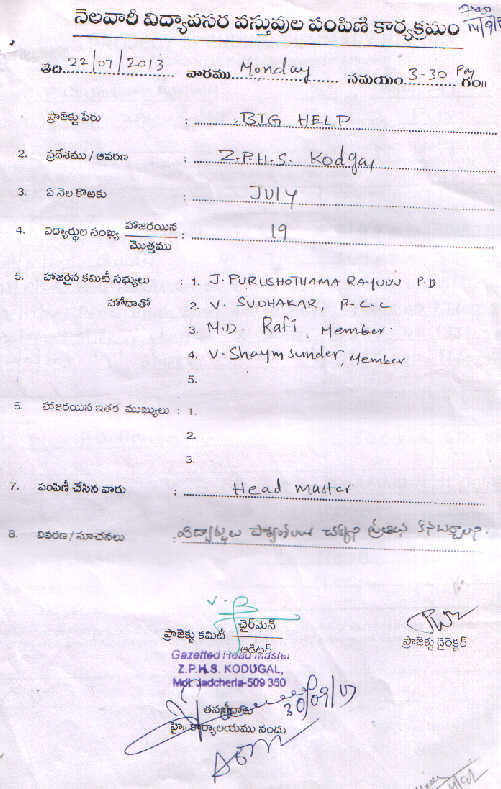 నెలవారీ విద్యావసర వస్తువుల పంపిణి కార్యక్రమం
తేది. 22/07/2013 వారము Monday సమయం. 3-30 గం॥
ప్రాజెక్టు పేరు : BIG HELP
2. ప్రదేశము / ఆవరణ : Z.P.H.S. Kodgal
3. ఏ నెల కొఱకు : JULY
4. విద్యార్థుల సంఖ్య హాజరయిన : 19
మొత్తము
5. హాజరైన కమిటీ సభ్యులు : 1. J. PURUSHOTHAMA RAYUDU P.D
హోదాతో 2. V. SUDHAKAR,
3. M.D. Rafi, Member
4. V. Shaym sunder, Member
5.
6. హాజరయిన ఇతర ముఖ్యులు : 1.
2.
3.
7. పంపిణీ చేసిన వారు : Head master
8. వివరణ / సూచనలు :
ప్రాజెక్టు కమిటీ చైర్‌మెన్
ఆడిటర్
ప్రాజెక్టు డైరెక్టర్
Gazetted Head Master
Z.P.H.S. KODUGAL,
Mdl: Jadcherla-509 350